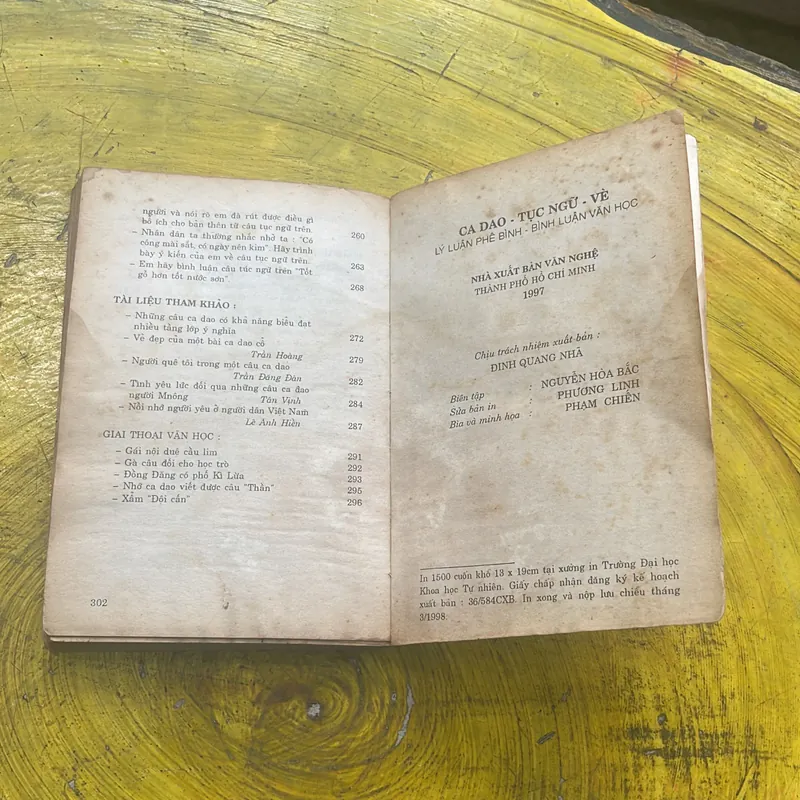 người và nói rõ em đã rút được điều gì
bổ ích cho bản thên từ câu tục ngữ trên 260
– Nhân dân ta thường nhắc nhở ta : "Có
công mài sắt, có ngày nên kim". Hãy trình
bày ý kiến của em về câu tục ngữ trên. 263
– Em hãy bình luận câu túc ngữ trên "Tốt
gỗ hơn tốt nước sơn" 268
TÀI LIỆU THAM KHẢO :
– Những câu ca dao có khả năng biểu đạt
nhiều tầng lớp ý nghĩa 272
– Vẻ đẹp của một bài ca dao cổ
Trần Hoàng 279
– Người quê tôi trong một câu ca dao
Trần Đáng Đàn 282
– Tình yêu lức đổi qua những câu ca đao
người Mnông Tán Vinh 284
– Nỗi nhớ người yêu ở người dân Việt Nam
Lê Anh Hiền 287
GIAI THOẠI VĂN HỌC :
– Gái nội duê cầu lim 291
– Gà câu đối cho học trò 292
– Đồng Đăng có phố Kì Lừa 293
– Nhớ ca dao viết được câu "Thần" 295
– Xẩm "Đội cấn" 296
302
CA DAO - TỤC NGỮ - VÈ
LÝ LUẬN PHÊ BÌNH - BÌNH LUẬN VĂN HỌC
NHÀ XUẤT BẢN VĂN NGHỆ
THÀNH PHỐ HỒ CHÍ MINH
1997
Chịu trách nhiệm xuất bản :
ĐINH QUANG NHÃ
Biên tập : NGUYỄN HÒA BẮC
Sửa bản in : PHƯƠNG LINH
Bìa và minh họa : PHẠM CHIẾN
In 1500 cuốn khổ 13 x 19cm tại xưởng in Trường Đại học
Khoa học Tự nhiên. Giấy chấp nhận đăng ký kế hoạch
xuất bản : 36/584CXB. In xong và nộp lưu chiểu tháng
3/1998.